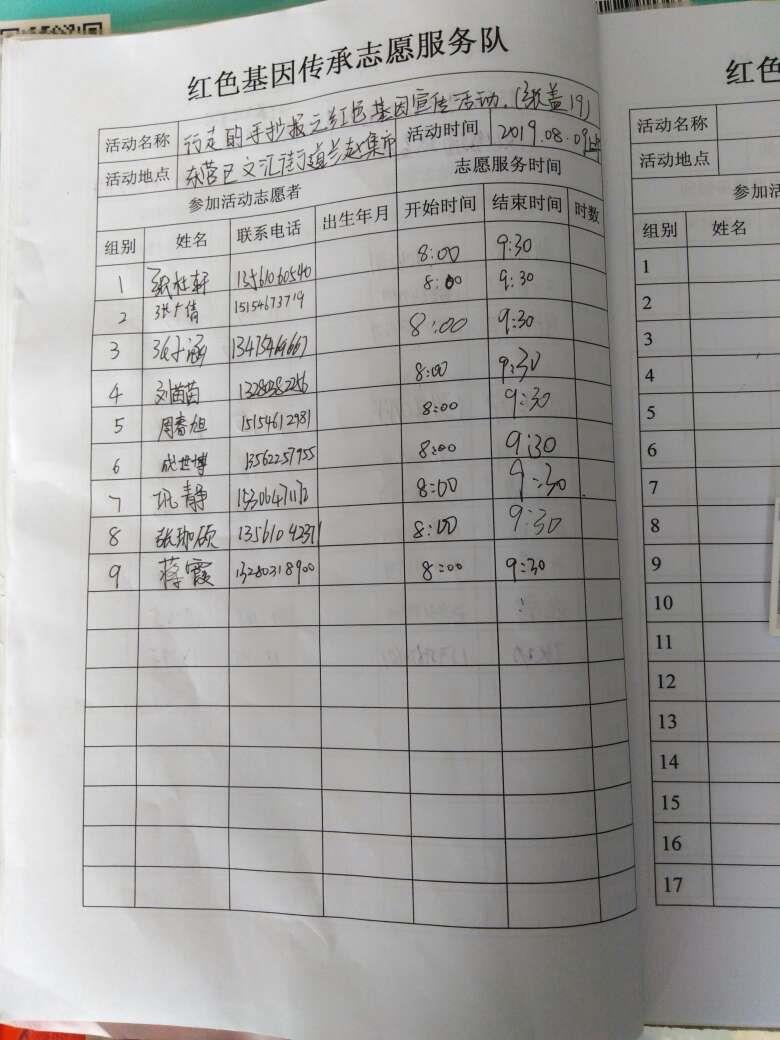 红色基因传承志愿服务队
活动名称 行走的手抄报之红色基因宣传活动.(张盖19) 
活动地点 东营区文汇街道兰赵集市 活动时间 2019.08.09上午
参加活动志愿者 志愿服务时间
组别 姓名 联系电话 出生年月 开始时间 结束时间 时数
1 13561060540 8:00 9:30
2 15154673719 8:00 9:30
3 张子涵 13475469667 8:00 9:30
4 刘苗苗 13280382256 8:00 9:30
5 周春旭 15154612981 8:00 9:30
6 成世博 13562257955 8:00 9:30
7 巩静 15306471172 8:00 9:30
8 张珈硕 13561042371 8:00 9:30
9 蒋霞 13280318900 8:00 9:30
红色
活动名称
活动地点
参加活
组别 姓名
1
2
3
4
5
6
7
8
9
10
11
12
13
14
15
16
17